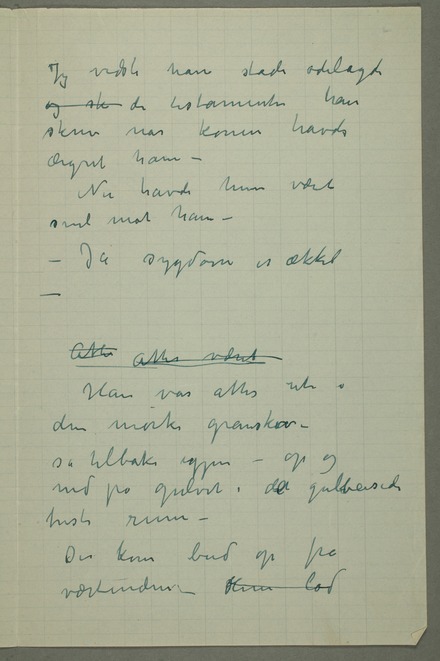 Jeg vidste han stade ødelagde
og sk de testamenter han
skrev nar konen havde
ærgret ham –
Nu havde hun vært
snil mot ham –
– Ja sygdom er ækkel
–
Atter atter været
Han var atter ute i
den mørke granskov –
sa tilbake igjen – op og
ned på gulvet i det gulbeisede
triste rum –
Der kom bud op fra
værtinden – Hun lod